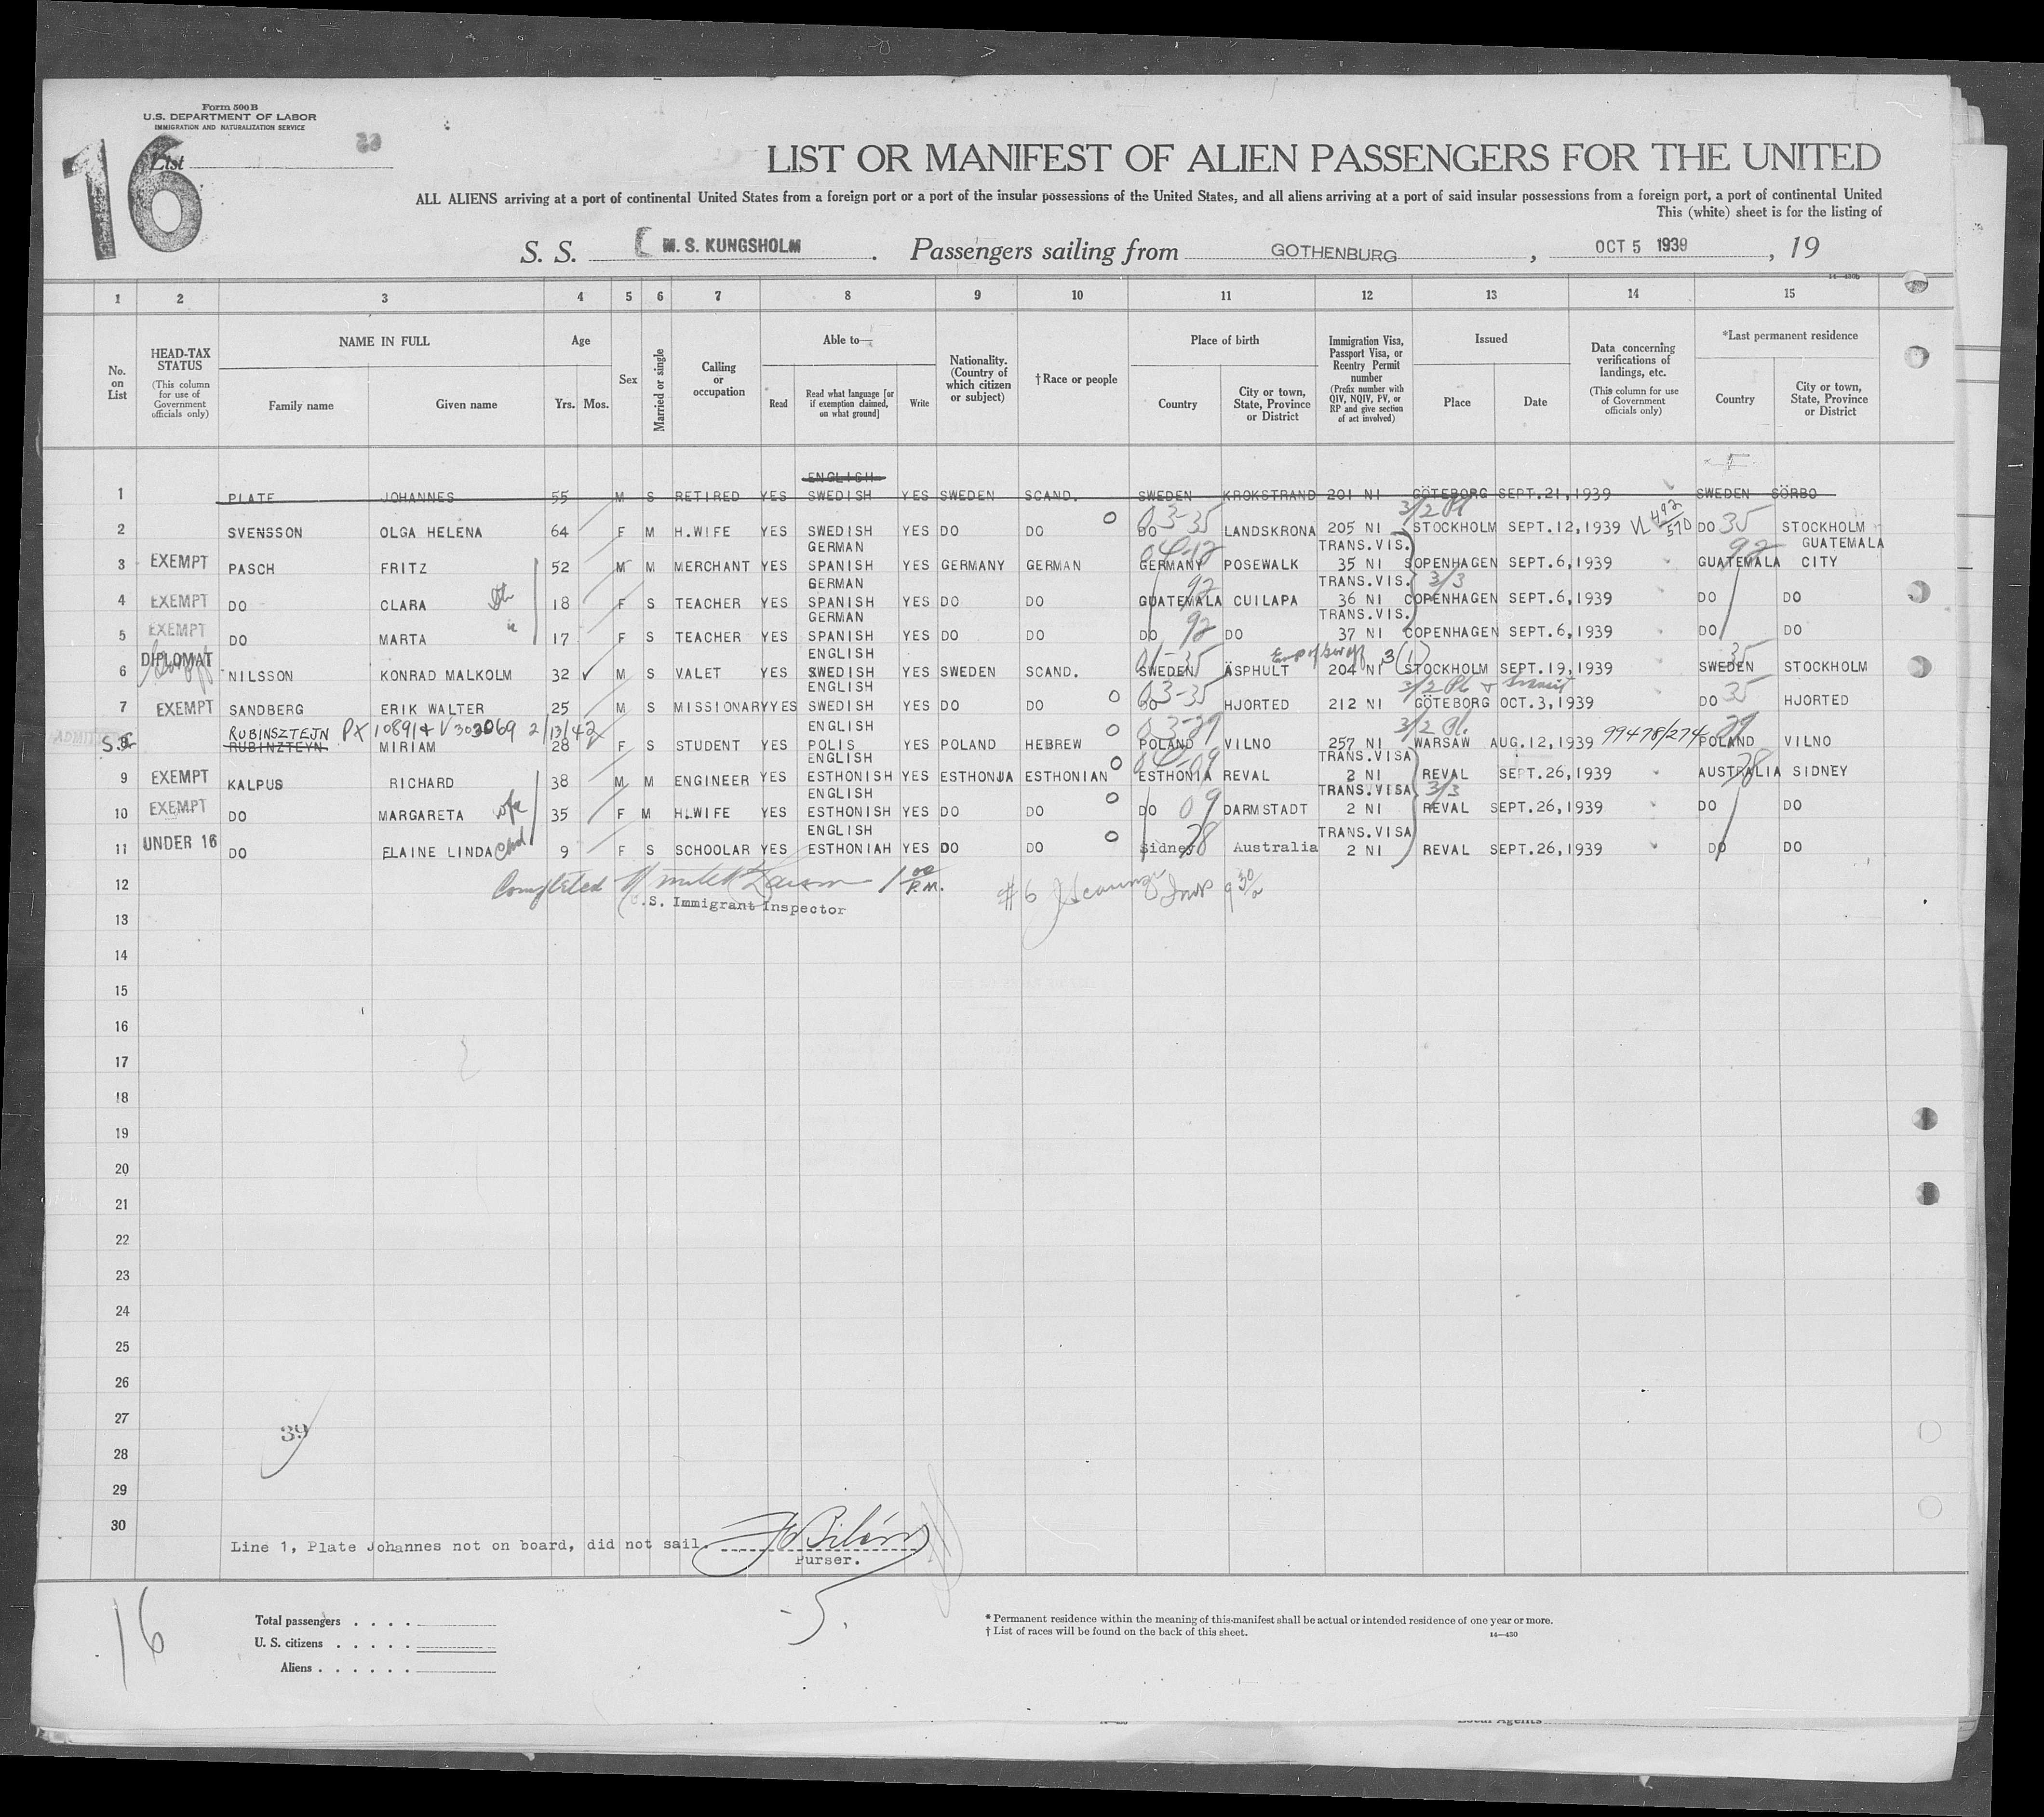 Form 500 B
U.S. DEPARTMENT OF LABOR
IMMIGRATION AND NATURALIZATION SERVICE
16
List
LIST OR MANIFEST OF ALIEN PASSENGERS FOR THE UNITED
ALL ALIENS arriving at a port of continental United States from a foreign port or a port of the insular possessions of the United States, and all aliens arriving at a port of said insular possessions from a foreign port, a port of continental United
This (white) sheet is for the listing of
S. S. M. S. KUNGSHOLM. Passengers sailing from GOTHENBURG, OCT 5 1939, 19
1 2 3 4 5 6 7 8 9 10 11 12 13 14 15
No. on List
HEAD-TAX STATUS (This column for use of Government officials only)
NAME IN FULL Family name Given name
Age Yrs. Mos.
Sex
Married or single
Calling or occupation
Able to— Read Read what language [or if exemption claimed, on what ground] Write
Nationality. (Country of which citizen or subject)
†Race or people
Place of birth Country City or town, State, Province or District
Immigration Visa, Passport Visa, or Reentry Permit number (Prefix number with QIV, NQIV, PV, or RP and give section of act involved)
Issued Place Date
Data concerning verifications of landings, etc. (This column for use of Government officials only)
*Last permanent residence Country City or town, State, Province or District
ENGLISH
1 PLATE JOHANNES 55 M S RETIRED YES SWEDISH YES SWEDEN SCAND. SWEDEN KROKSTRAND 201 NI GÖTEBORG SEPT.21,1939 SWEDEN SÖRBO
03-35 3/2 Pl 492/570 35
2 SVENSSON OLGA HELENA 64 F M H.WIFE YES SWEDISH YES DO DO DO LANDSKRONA 205 NI STOCKHOLM SEPT.12,1939 DO STOCKHOLM
GERMAN TRANS.VIS. 92 GUATEMALA
3 EXEMPT PASCH FRITZ 52 M M MERCHANT YES SPANISH YES GERMANY GERMAN GERMANY POSEWALK 35 NI COPENHAGEN SEPT.6,1939 GUATEMALA CITY
GERMAN 92 TRANS.VIS. 3/3
4 EXEMPT DO CLARA 18 F S TEACHER YES SPANISH YES DO DO GUATEMALA CUILAPA 36 NI COPENHAGEN SEPT.6,1939 DO DO
GERMAN 92 TRANS.VIS.
5 EXEMPT DO MARTA 17 F S TEACHER YES SPANISH YES DO DO DO DO 37 NI COPENHAGEN SEPT.6,1939 DO DO
DIPLOMAT ENGLISH 01-35 3(1) 35
6 NILSSON KONRAD MALKOLM 32 M S VALET YES SWEDISH YES SWEDEN SCAND. SWEDEN ÄSPHULT 204 NI STOCKHOLM SEPT.19,1939 SWEDEN STOCKHOLM
ENGLISH 03-35 3/2 Pl 35
7 EXEMPT SANDBERG ERIK WALTER 25 M S MISSIONARY YES SWEDISH YES DO DO DO HJORTED 212 NI GÖTEBORG OCT.3,1939 DO HJORTED
RUBINSZTEJN PX 10891 & V 303069 2/13/42 ENGLISH 03-29 3/2 Pl. 29
8 RUBINZTEYN MIRIAM 28 F S STUDENT YES POLIS YES POLAND HEBREW POLAND VILNO 257 NI WARSAW AUG.12,1939 99478/274 POLAND VILNO
ENGLISH 04-09 TRANS.VISA 78
9 EXEMPT KALPUS RICHARD 38 M M ENGINEER YES ESTHONISH YES ESTHONIA ESTHONIAN ESTHONIA REVAL 2 NI REVAL SEPT.26,1939 AUSTRALIA SIDNEY
ENGLISH TRANS.VISA 3/3
10 EXEMPT DO MARGARETA wfe 35 F M H.WIFE YES ESTHONISH YES DO DO DO 09 DARMSTADT 2 NI REVAL SEPT.26,1939 DO DO
ENGLISH TRANS.VISA
11 UNDER 16 DO ELAINE LINDA Chd 9 F S SCHOOLAR YES ESTHONIAH YES DO DO Sidney 78 Australia 2 NI REVAL SEPT.26,1939 DO DO
12 Completed 1 00 P.M. #6
U.S. Immigrant Inspector
13
14
15
16
17
18
19
20
21
22
23
24
25
26
27
39
28
29
30
Line 1, Plate Johannes not on board, did not sail.
Purser.
16
Total passengers
U. S. citizens
Aliens
5.
* Permanent residence within the meaning of this manifest shall be actual or intended residence of one year or more.
† List of races will be found on the back of this sheet.
14—430